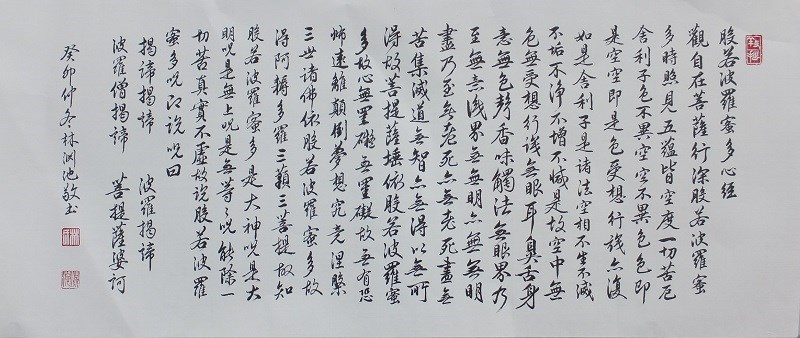 般若波羅蜜多心經
觀自在菩薩行深般若波羅蜜
多時照見五蘊皆空度一切苦厄
舍利子色不異空空不異色色即
是空空即是色受想行識亦復
如是舍利子是諸法空相不生不滅
不垢不淨不增不減是故空中無
色無受想行識無眼耳鼻舌身
意無色聲香味觸法無眼界乃
至無意識界無無明亦無無明
盡乃至无老死亦無老死盡無
苦集滅道無智亦無得以無所
得故菩提薩埵依般若波羅蜜
多故心無罣礙無罣礙故无有恐
怖遠離顛倒夢想究竟涅槃
三世諸佛依般若波羅蜜多故
得阿耨多羅三藐三菩提故知
般若波羅蜜多是大神呪是大
明呪是無上呪是無等々呪能除一
切苦真實不虛故說般若波羅
蜜多呪即說呪曰
揭諦揭諦 波羅揭諦
波羅僧揭諦 菩提薩婆訶
癸卯仲冬林渊池敬書